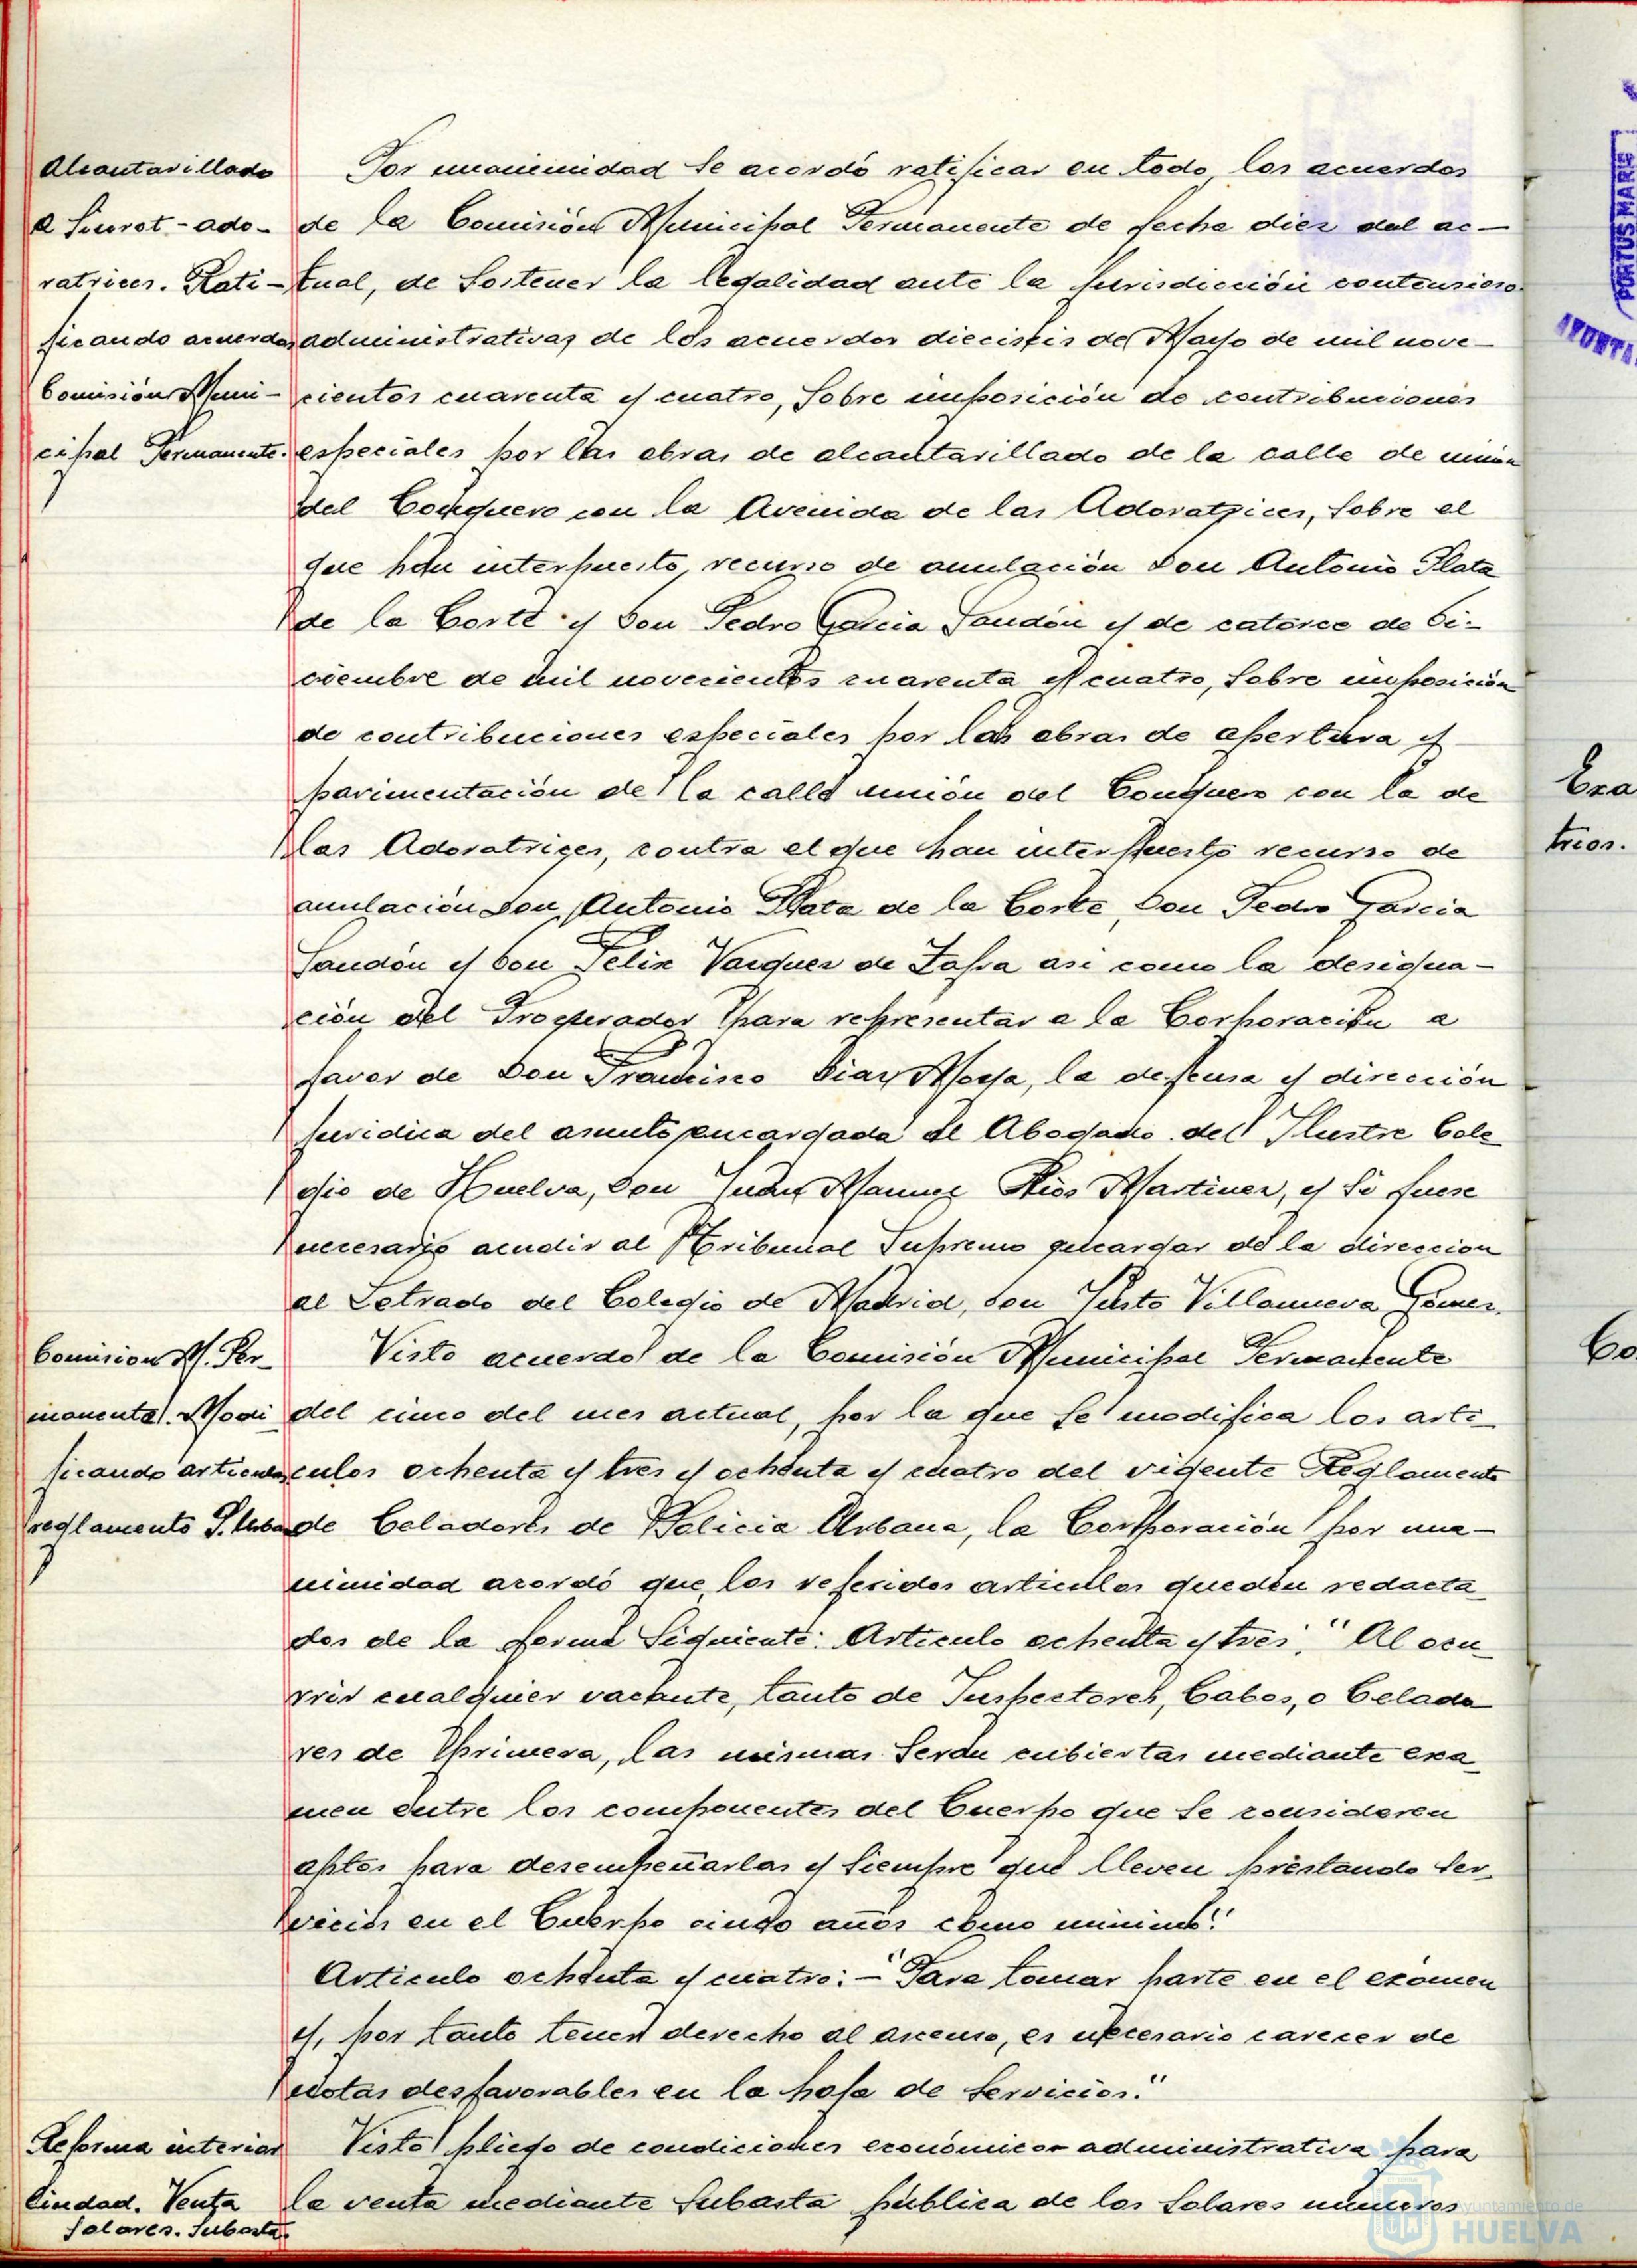 Alcantarillado
a Siurot-ado-
ratrices. Rati-
ficando acuerdos
Comisión Muni-
cipal Permanente.
Por unanimidad se acordó ratificar en todo los acuerdos
de la Comisión Municipal Permanente de fecha diez del ac-
tual, de sostener la legalidad ante la jurisdicción contencioso
administrativas de los acuerdos dieciseis de Mayo de mil nove-
cientos cuarenta y cuatro, sobre imposición de contribuciones
especiales por las obras de alcantarillado de la calle de unión
del Conquero con la Avenida de las Adoratrices, sobre el
que han interpuesto recurso de anulación Don Antonio Plata
de la Corte y Don Pedro Garcia Landón y de catorce de Di-
ciembre de mil novecientos cuarenta y cuatro, sobre imposición
de contribuciones especiales por las obras de apertura y
pavimentación de la calle unión del Conquero con la de
las Adoratrices, contra el que han interpuesto recurso de
anulación Don Antonio Plata de la Corte, Don Pedro Garcia
Landón y Don Felix Vazquez de Zafra asi como la designa-
ción del Procurador para representar a la Corporación a
favor de Don Francisco Diaz Moya, la defensa y dirección
juridica del asunto encargada al Abogado del Ilustre Cole
gio de Huelva, Don Juan Manuel Rios Martinez, y si fuese
necesario acudir al Tribunal Supremo encargar de la direccion
al Letrado del Colegio de Madrid, Don Justo Villanueva Gómez.
Comision M. Per-
manente. Modi
ficando articulos
reglamento P. Urbana
Visto acuerdo de la Comisión Municipal Permanente
del cinco del mes actual, por la que se modifica los arti-
culos ochenta y tres y ochenta y cuatro del vigente Reglamento
de Celadores de Policia Urbana, la Corporación por una-
nimidad acordó que los referidos articulos queden redacta
dos de la forma siguiente: Articulo ochenta y tres: "Al ocu
rrir cualquier vacante, tanto de Inspectores, Cabos, o Celado
res de Primera, las mismas serán cubiertas mediante exa
men entre los componentes del Cuerpo que se consideren
aptos para desempeñarlas y siempre que lleven prestando ser
vicios en el Cuerpo cinco años como minimo."
Articulo ochenta y cuatro:- "Para tomar parte en el exámen
y, por tanto tener derecho al ascenso, es necesario carecer de
notas desfavorables en la hoja de servicios."
Reforma interior
Ciudad. Venta
solares. Subasta.
Visto pliego de condiciones económico administrativa para
la venta mediante subasta pública de los solares números
PORTUS MARIS
AYUNTA
Exa
trios.
Co
Ayuntamiento de
HUELVA